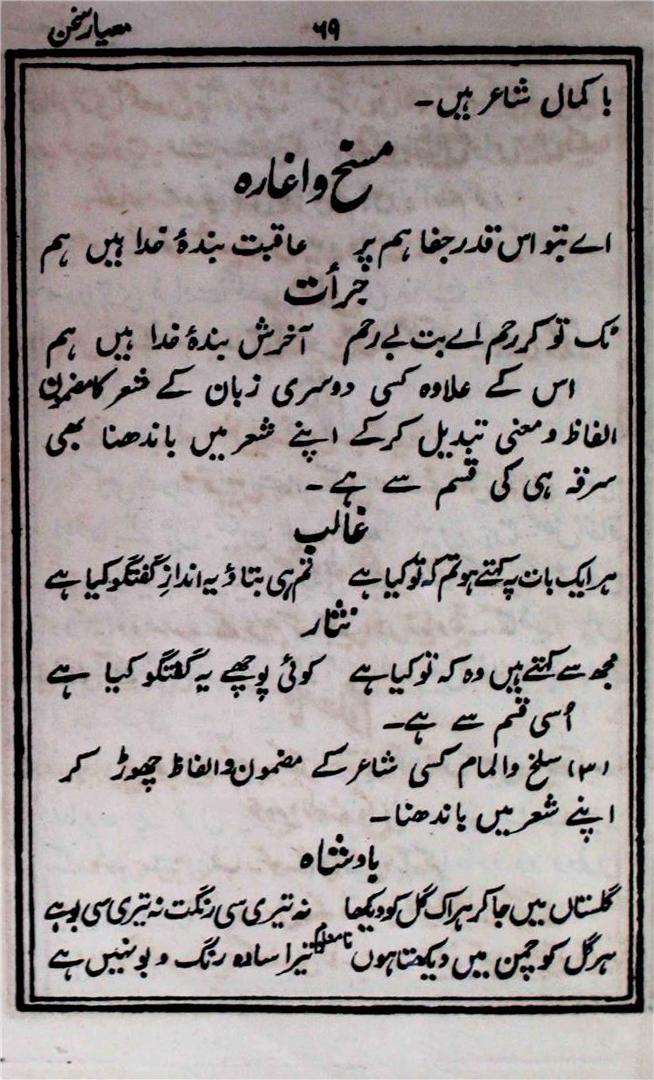 معیار سخن
۶۹
با کمال شاعر ہیں۔
مسخ و اغارہ
اے بتو اس قدر جفا ہم پر عاقبت بندۂ خدا ہیں ہم
جرأت
ٹک تو کر رحم اے بت بے رحم آخرش بندۂ خدا ہیں ہم
اس کے علاوہ کسی دوسری زبان کے شعر کا مضمون
الفاظ و معنی تبدیل کرکے اپنے شعر میں باندھنا بھی
سرقہ ہی کی قسم سے ہے۔
غالب
ہر ایک بات پہ کہتے ہو تم کہ تو کیا ہے تم ہی بتاؤ یہ اندازِ گفتگو کیا ہے
نثار
مجھ سے کہتے ہیں وہ کہ تو کیا ہے کوئی پوچھے یہ گفتگو کیا ہے
اُسی قسم سے ہے۔
(۳) سلخ والمام کسی شاعر کے مضمون و الفاظ چھوڑ کر
اپنے شعر میں باندھنا۔
بادشاہ
گلستاں میں جا کر ہر اک گل کو دیکھا نہ تیری سی رنگت نہ تیری سی بو ہے
ہر گل کو چمن میں دیکھتا ہوں نامعلوم تیرا سادہ رنگ و بو نہیں ہے